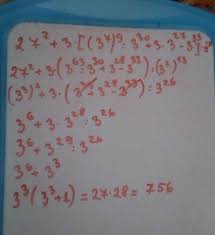 27² + 3 · [(3⁷)⁹ : 3³⁰ + 3 · 3²⁷ - 3³³] :
27² + 3 · (3⁶³ : 3³⁰ + 3²⁸ - 3³³) : (3²)¹³
(3³)² + 3 · (3³³ + 3²⁸ - 3³³) : 3²⁶
3⁶ + 3 · 3²⁸ : 3²⁶
3⁶ + 3²⁹ : 3²⁶
3⁶ + 3³
3³(3³+1) = 27 · 28 = 756